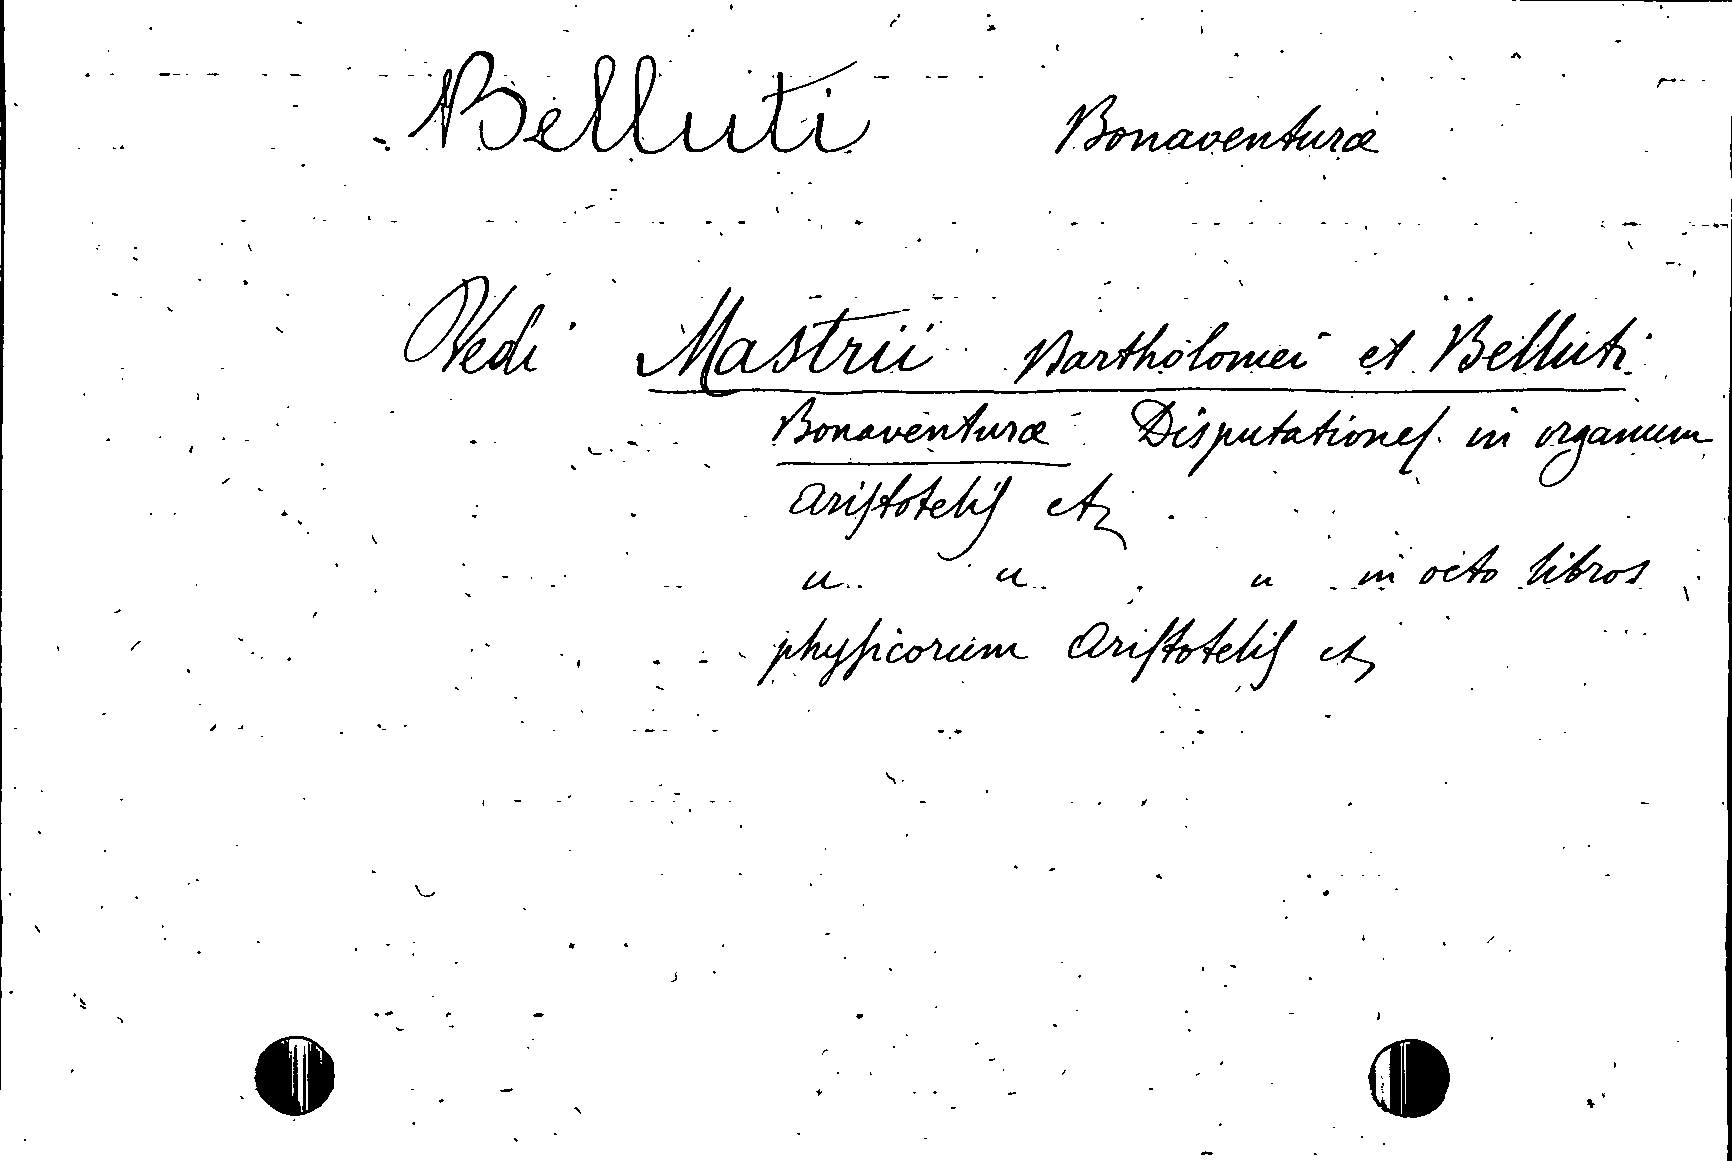 Belluti Bonaventuræ
Vedi Mastrii Bartholomei et Belluti
Bonaventuræ Disputationeſ in organum
Ariſtoteliſ etz
" " " in octo libros
phyſicorum Ariſtoteliſ etz